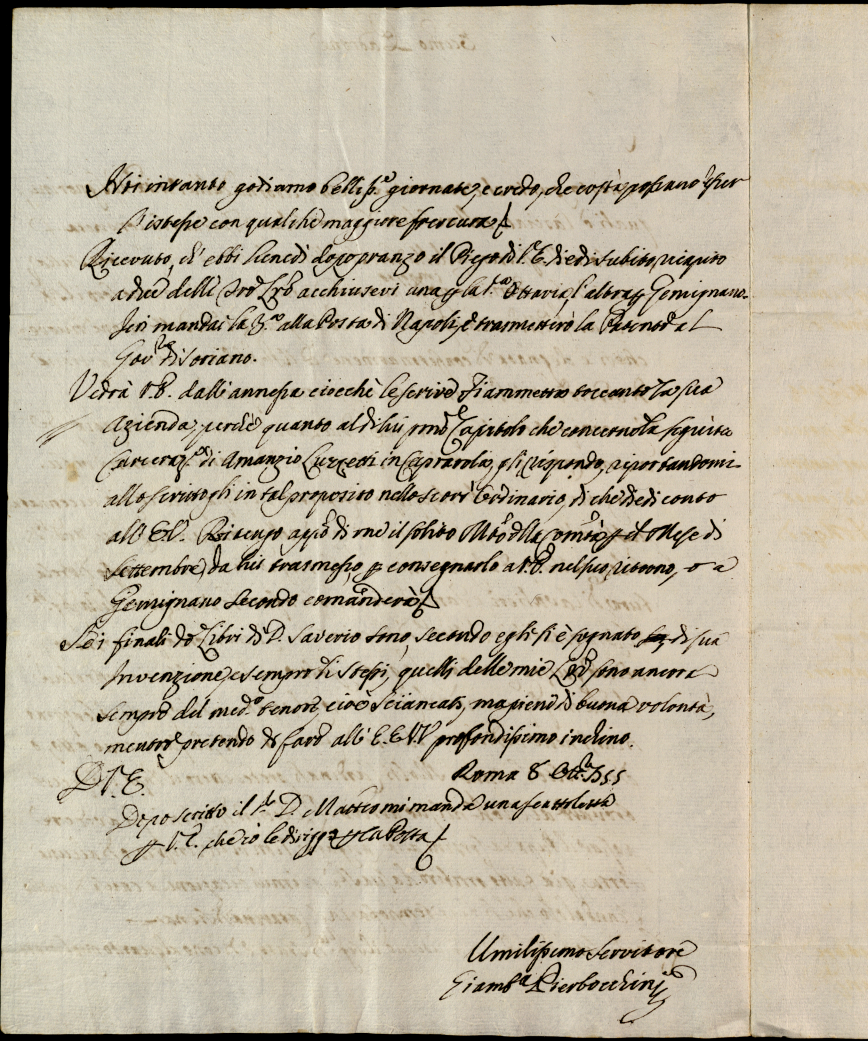 Noi intanto godiamo belliss.e giornate, e credo, che costà possano esser
l'istesse con qualche maggiore frescura
Ricevuto, ch'ebbi Lunedì dopo pranzo il Piego di V.E. diedi subito
a due delle acchiusevi una p la S.ra Ottavia, l'altra p Gemignano.
Jeri mandai la 3.a alla Posta di Napoli, e trasmetterò la Patente al
Gov.re di Soriano.
Vedrà V.E. dall'annessa ciocchè le scrive Fiammetto toccante la sua
Azienda, perchè quanto al di lui Capitolo che concerne la seguita
Carceraz.e di Amanzio Luzzetti in Caprarola, gli rispondo, riportandomi
allo scrittogli in tal proposito nello scorso Ordinario, di che diedi conto
all' E.V. Ritengo app.o di me il solito della p il Mese di
Settembre, da lui trasmesso p consegnarlo a V.E. nel suo ritorno, o a
Gemignano secondo comanderà
Se i finali de Libri di D. Saverio sono, secondo egli si è sognato di sua
Invenzione, e sempre li stessi, quelli delle mie sono ancora
sempre del med.o tenore, cioè sciancati, ma pieni di buona volontà,
mentre pretendo di fare all' E.V. profondissimo inchino.
D. V.E. Roma 8 Ott.re 1755
Dopo scritto il S.r D. Matteo mi manda una scattoletta
p V.E. che io le dirigga p la Posta
Umilissimo Servitore
Giamb.a Pierbocchini